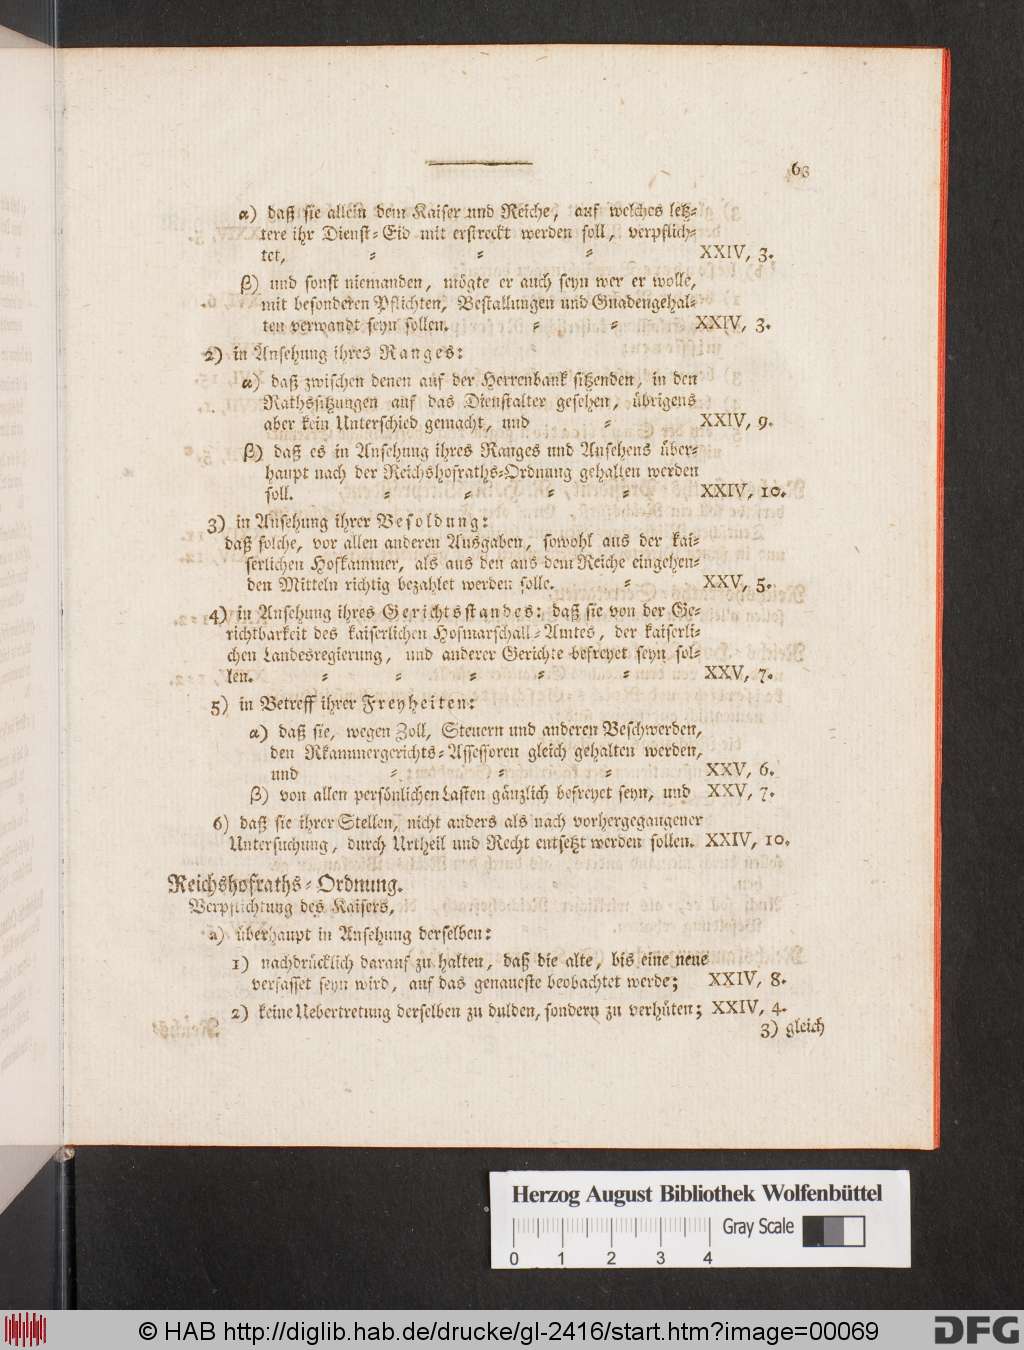 63
α) daß sie allein dem Kaiser und Reiche, auf welches letz-
tere ihr Dienst-Eid mit erstreckt werden soll, verpflich-
tet, = = = XXIV, 3.
β) und sonst niemanden, mögte er auch seyn wer er wolle,
mit besonderen Pflichten, Bestallungen und Gnadengehal-
ten verwandt seyn sollen. = = XXIV, 3.
2) in Ansehung ihres Ranges:
α) daß zwischen denen auf der Herrenbank sitzenden, in den
Rathssitzungen auf das Dienstalter gesehen, übrigens
aber kein Unterschied gemacht, und = XXIV, 9.
β) daß es in Ansehung ihres Ranges und Ansehens über-
haupt nach der Reichshofraths-Ordnung gehalten werden
soll. = = = = XXIV, 10.
3) in Ansehung ihrer Besoldung:
daß solche, vor allen anderen Ausgaben, sowohl aus der kai-
serlichen Hofkammer, als aus den aus dem Reiche eingehen-
den Mitteln richtig bezahlet werden solle. = XXV, 5.
4) in Ansehung ihres Gerichtsstandes: daß sie von der Ge-
richtbarkeit des kaiserlichen Hofmarschall-Amtes, der kaiserli-
chen Landesregierung, und anderer Gerichte befreyet seyn sol-
len. = = = = = XXV, 7.
5) in Betreff ihrer Freyheiten:
α) daß sie, wegen Zoll, Steuern und anderen Beschwerden,
den Rkammergerichts-Assessoren gleich gehalten werden,
und = = = XXV, 6.
β) von allen persönlichen Lasten gänzlich befreyet seyn, und XXV, 7.
6) daß sie ihrer Stellen, nicht anders als nach vorhergegangener
Untersuchung, durch Urtheil und Recht entsetzt werden sollen. XXIV, 10.
Reichshofraths-Ordnung.
Verpflichtung des Kaisers,
a) überhaupt in Ansehung derselben:
1) nachdrücklich darauf zu halten, daß die alte, bis eine neue
verfasset seyn wird, auf das genaueste beobachtet werde; XXIV, 8.
2) keine Uebertretung derselben zu dulden, sondern zu verhüten; XXIV, 4.
3) gleich
Herzog August Bibliothek Wolfenbüttel
Gray Scale
0 1 2 3 4
© HAB http://diglib.hab.de/drucke/gl-2416/start.htm?image=00069
DFG